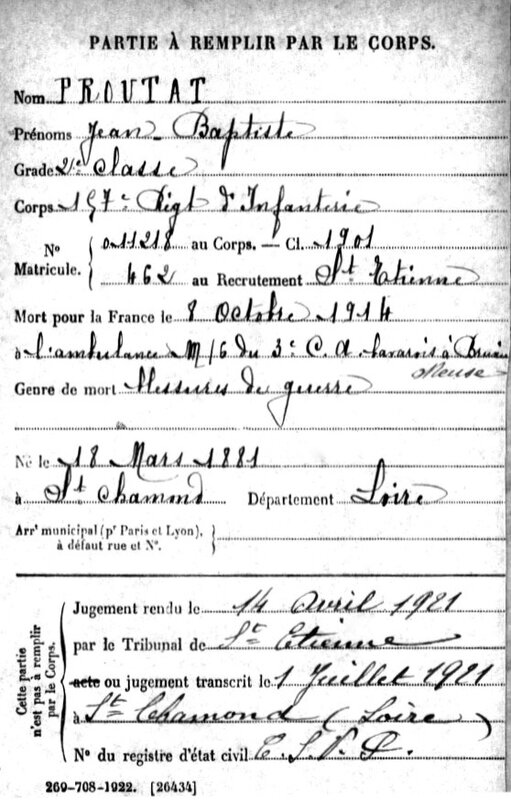 PARTIE À REMPLIR PAR LE CORPS.
Nom PROUTAT
Prénoms Jean-Baptiste
Grade 2e classe
Corps 157e Rigt d'Infanterie
No Matricule. { 011218 au Corps. — Cl. 1901
462 au Recrutement St Etienne
Mort pour la France le 8 Octobre 1914
à l'ambulance M/6 du 3e C. A. bavarois à
Meuse
Genre de mort blessures de guerre
Né le 18 Mars 1881
à St Chamond Département Loire
Arrt municipal (pr Paris et Lyon), }
à défaut rue et No.
Cette partie n'est pas à remplir par le Corps.
Jugement rendu le 14 avril 1921
par le Tribunal de St Etienne
acte ou jugement transcrit le 1 Juillet 1921
à St Chamond (Loire)
No du registre d'état civil
269-708-1922. [26434]